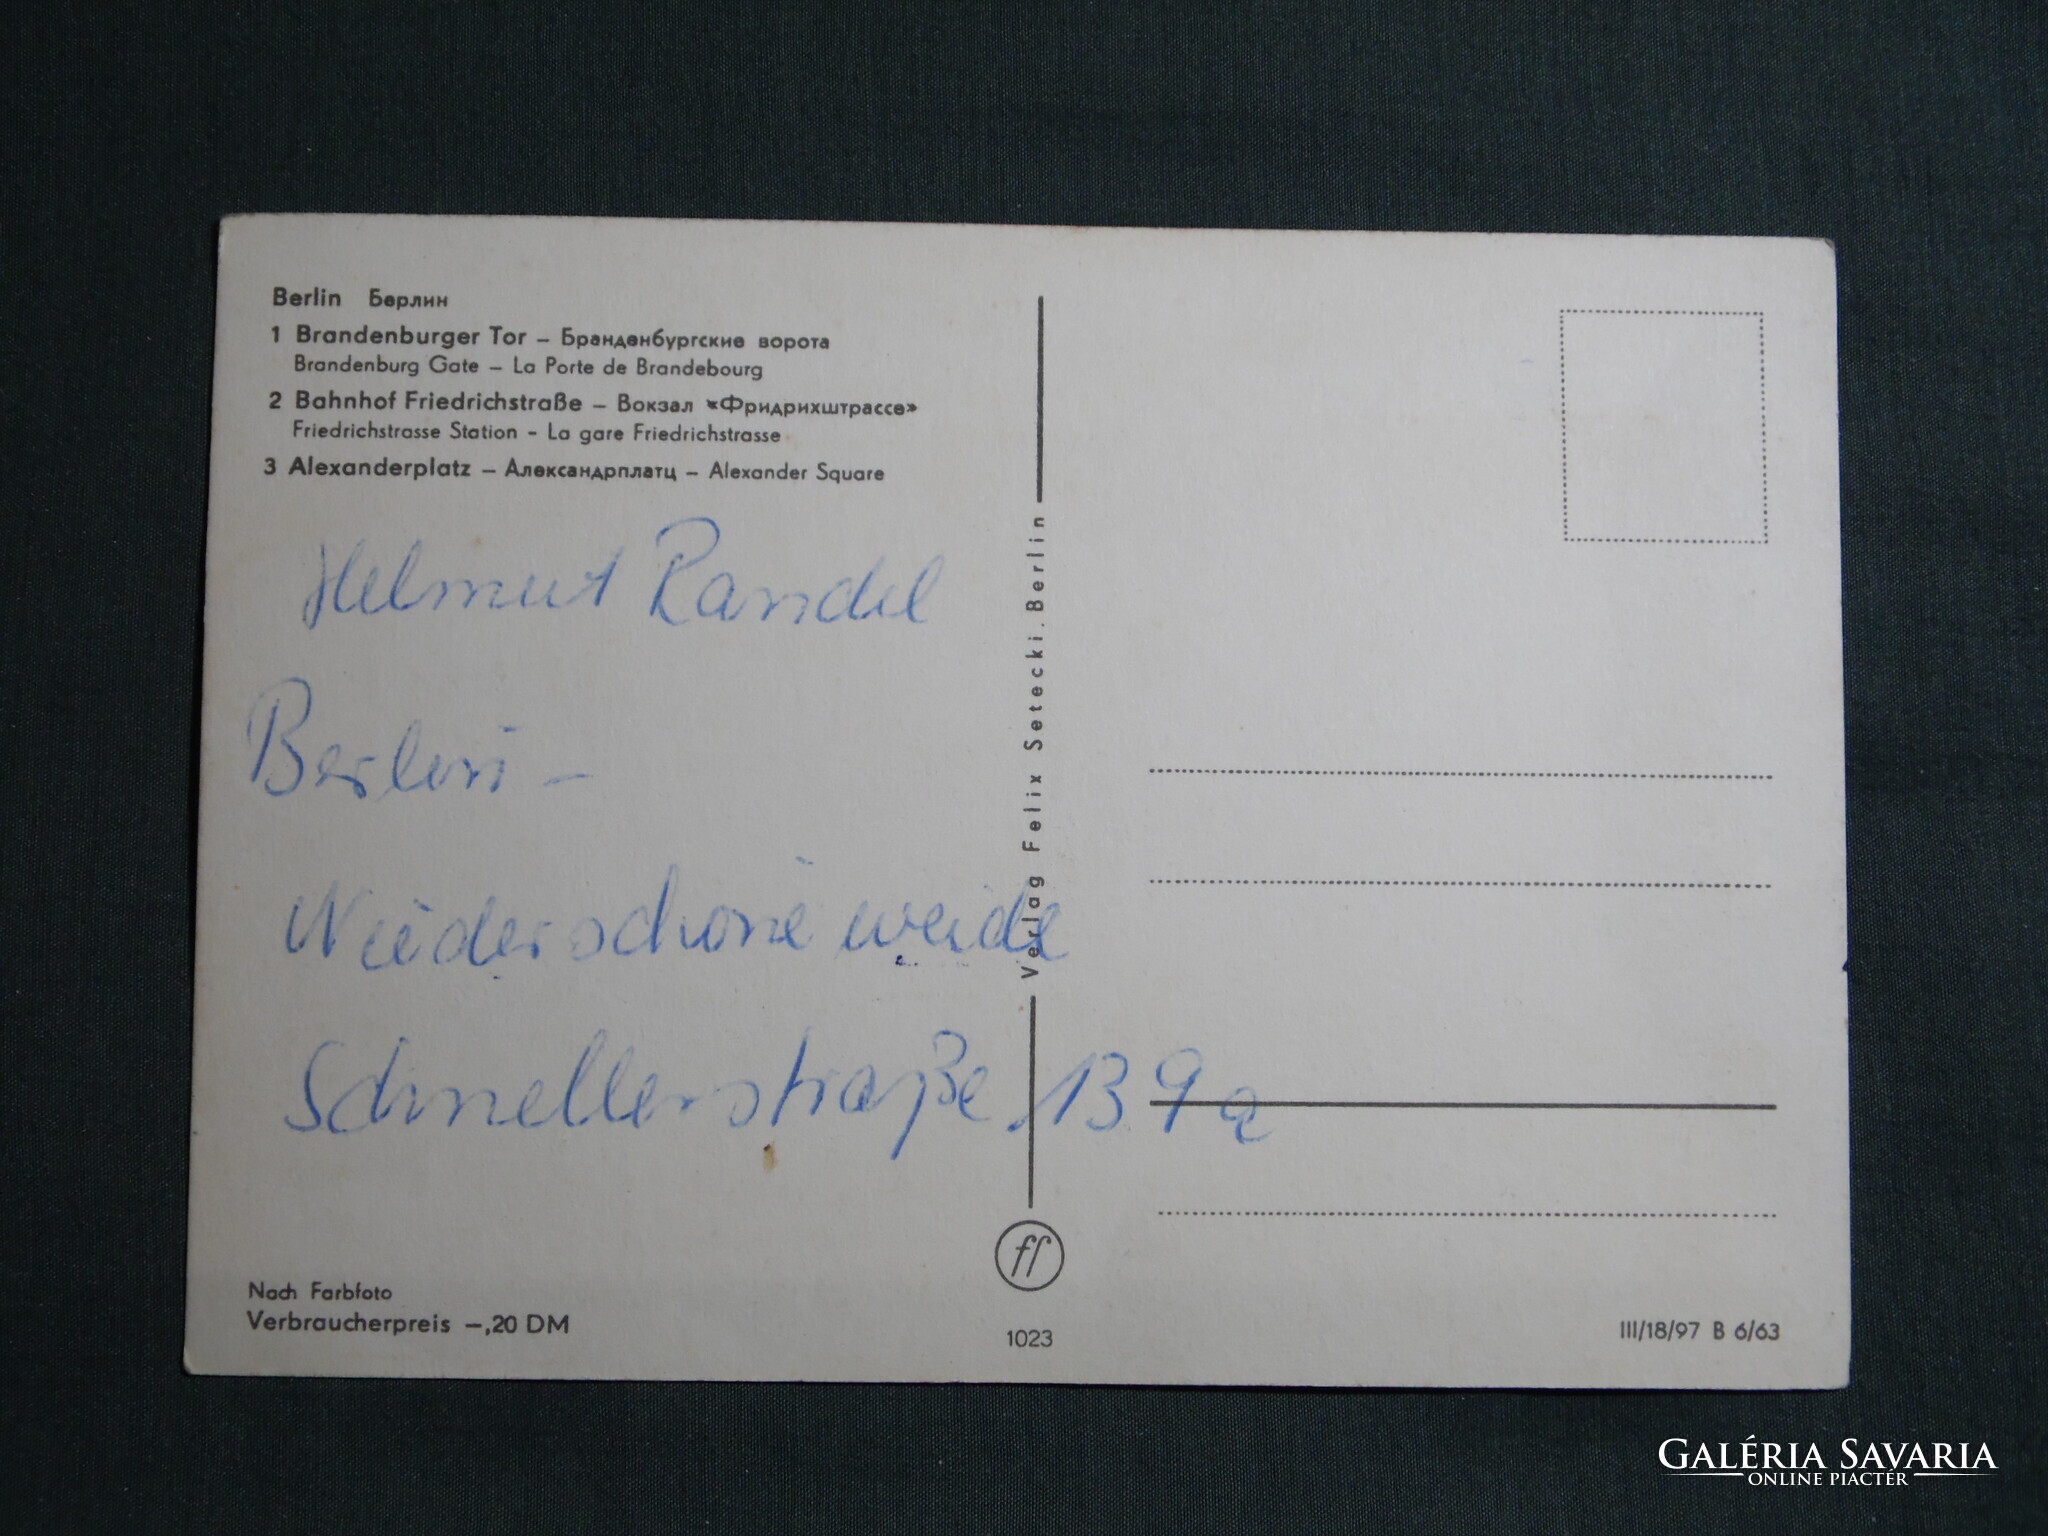 Berlin Берлин
1 Brandenburger Tor – Бранденбургские ворота
Brandenburg Gate – La Porte de Brandebourg
2 Bahnhof Friedrichstraße – Вокзал «Фридрихштрассе»
Friedrichstrasse Station - La gare Friedrichstrasse
3 Alexanderplatz – Александрплатц – Alexander Square
Helmut Randel
Berlin –
Niederschöneweide
Schnellerstraße 139a
Verlag Felix Setecki. Berlin
Nach Farbfoto
Verbraucherpreis –,20 DM
1023
III/18/97 B 6/63
GALÉRIA SAVARIA
ONLINE PIACTÉR